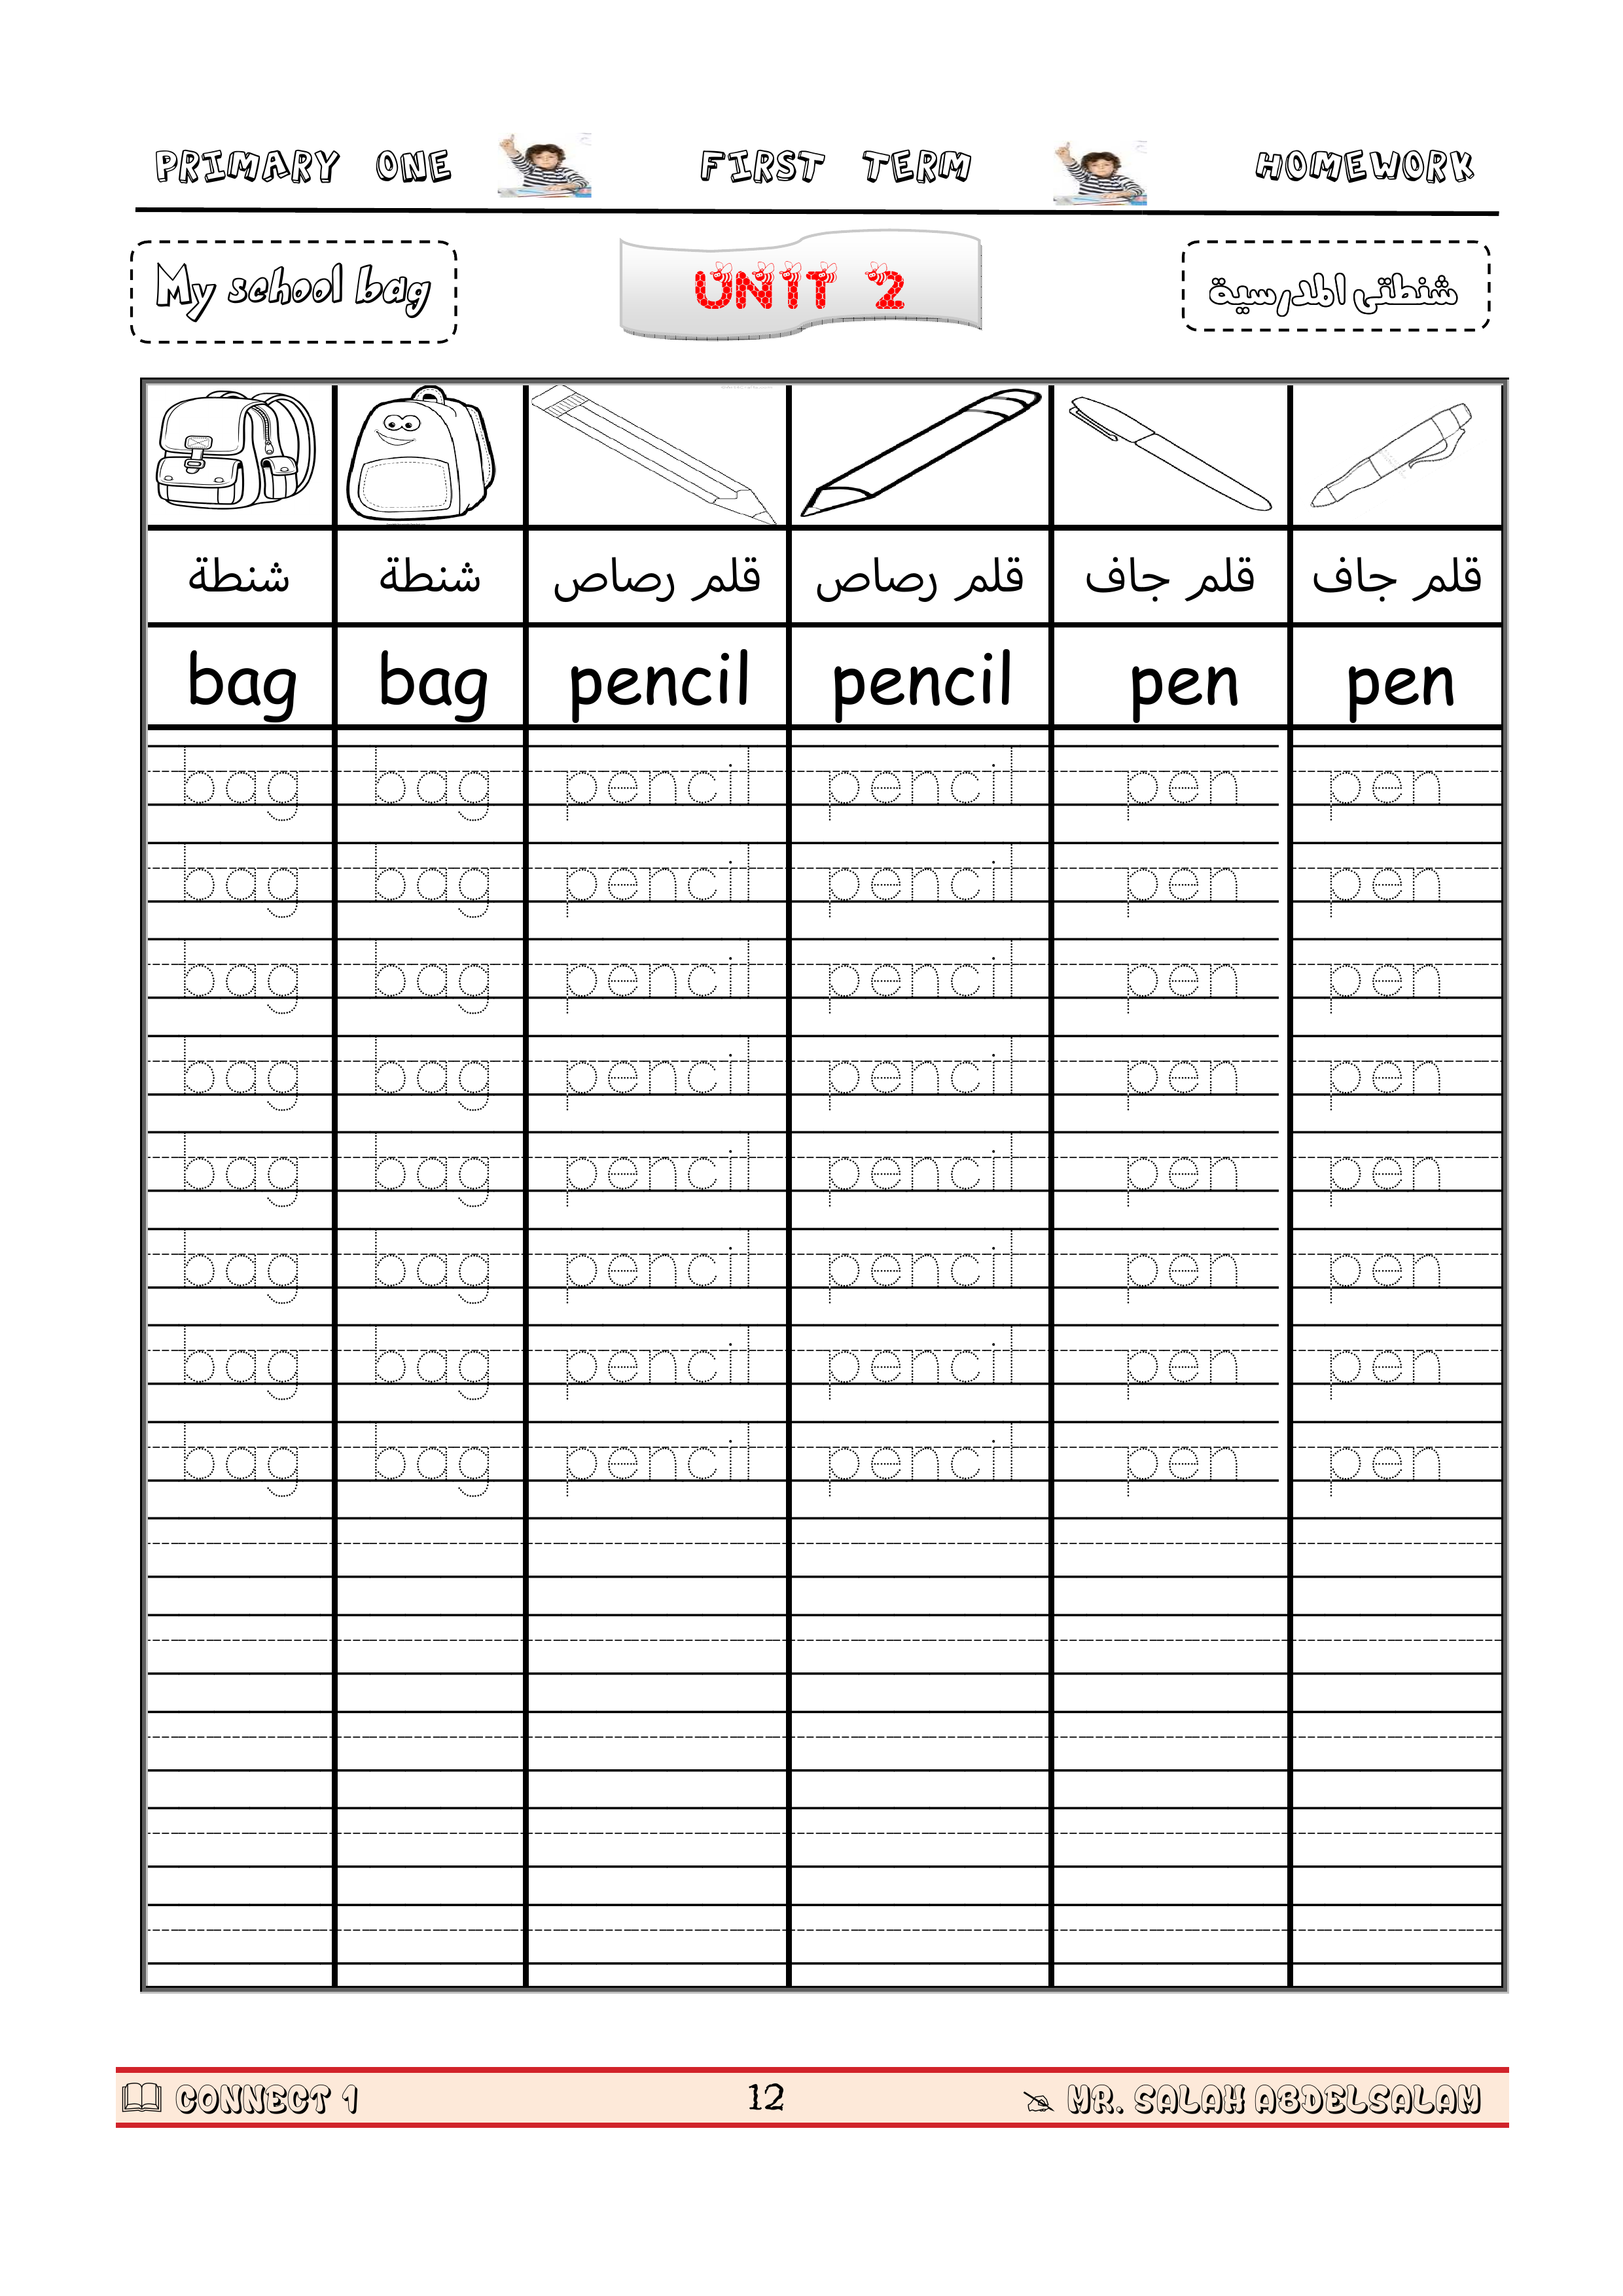 PRIMARY ONE FIRST TERM HOMEWORK
My school bag UNIT 2 شنطتى المدرسية
شنطة شنطة قلم رصاص قلم رصاص قلم جاف قلم جاف
bag bag pencil pencil pen pen
bag bag pencil pencil pen pen
bag bag pencil pencil pen pen
bag bag pencil pencil pen pen
bag bag pencil pencil pen pen
bag bag pencil pencil pen pen
bag bag pencil pencil pen pen
bag bag pencil pencil pen pen
bag bag pencil pencil pen pen
CONNECT 1 12 MR. SALAH ABDELSALAM